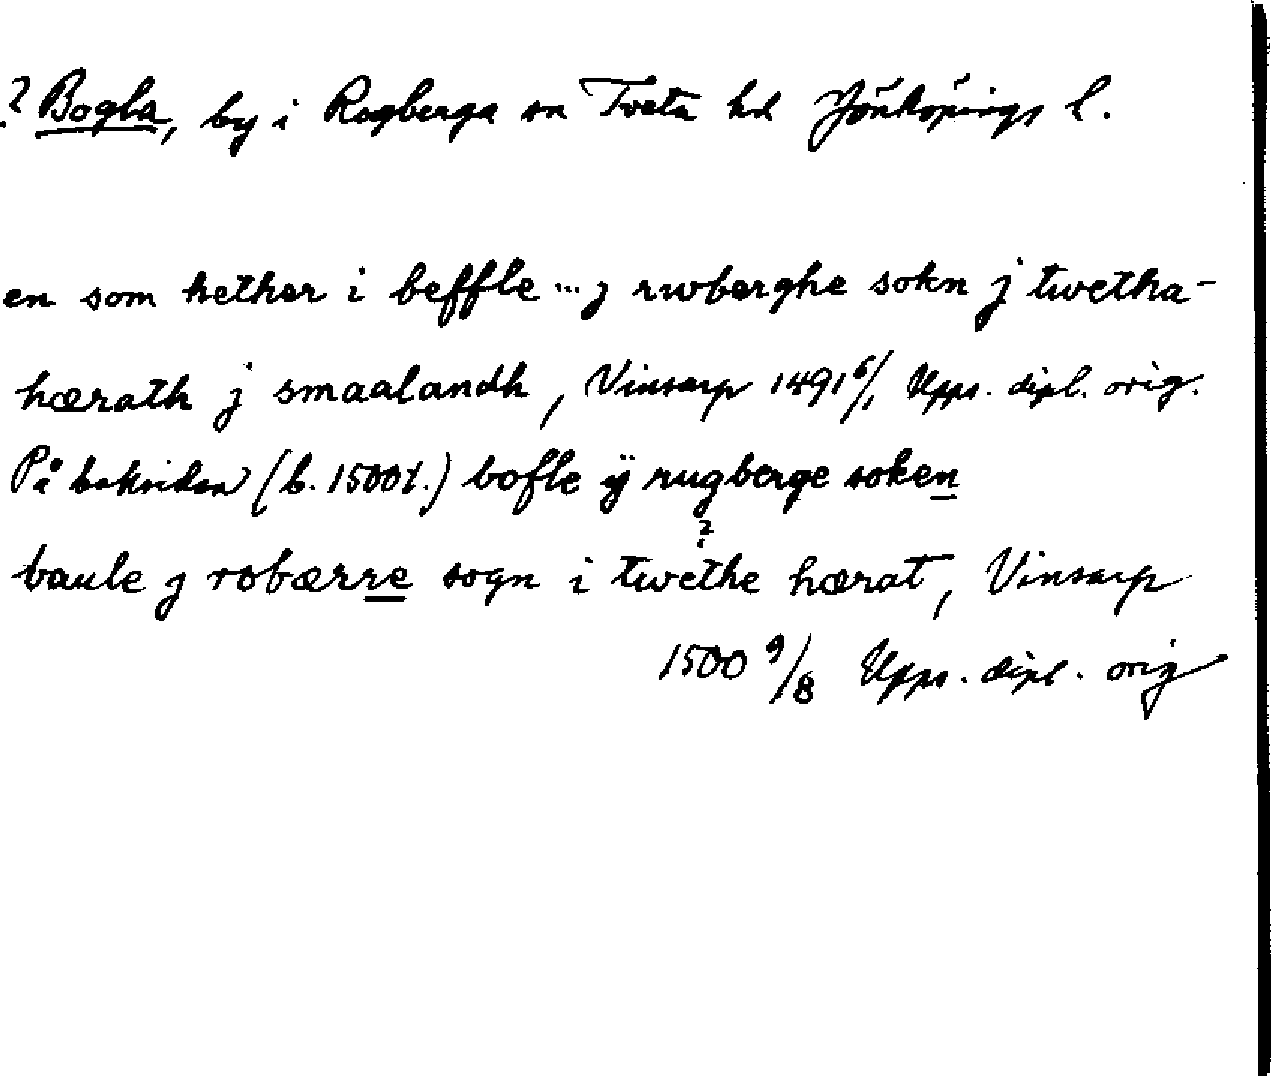 ? Bogla, by i Rogberga sn Tveta hd Jönköpings l.
en som hether i beffle ... j rwberghe sokn j twetha-
hærath j smaalandh, Vinsarp 1491 6/1 Upps. dipl. orig.
På baksidan (b. 1500 t.) bofle ÿ rugberge soken
baule j robærre sogn i twethe ? hærat, Vinsarp
1500 9/8 Upps. dipl. orig